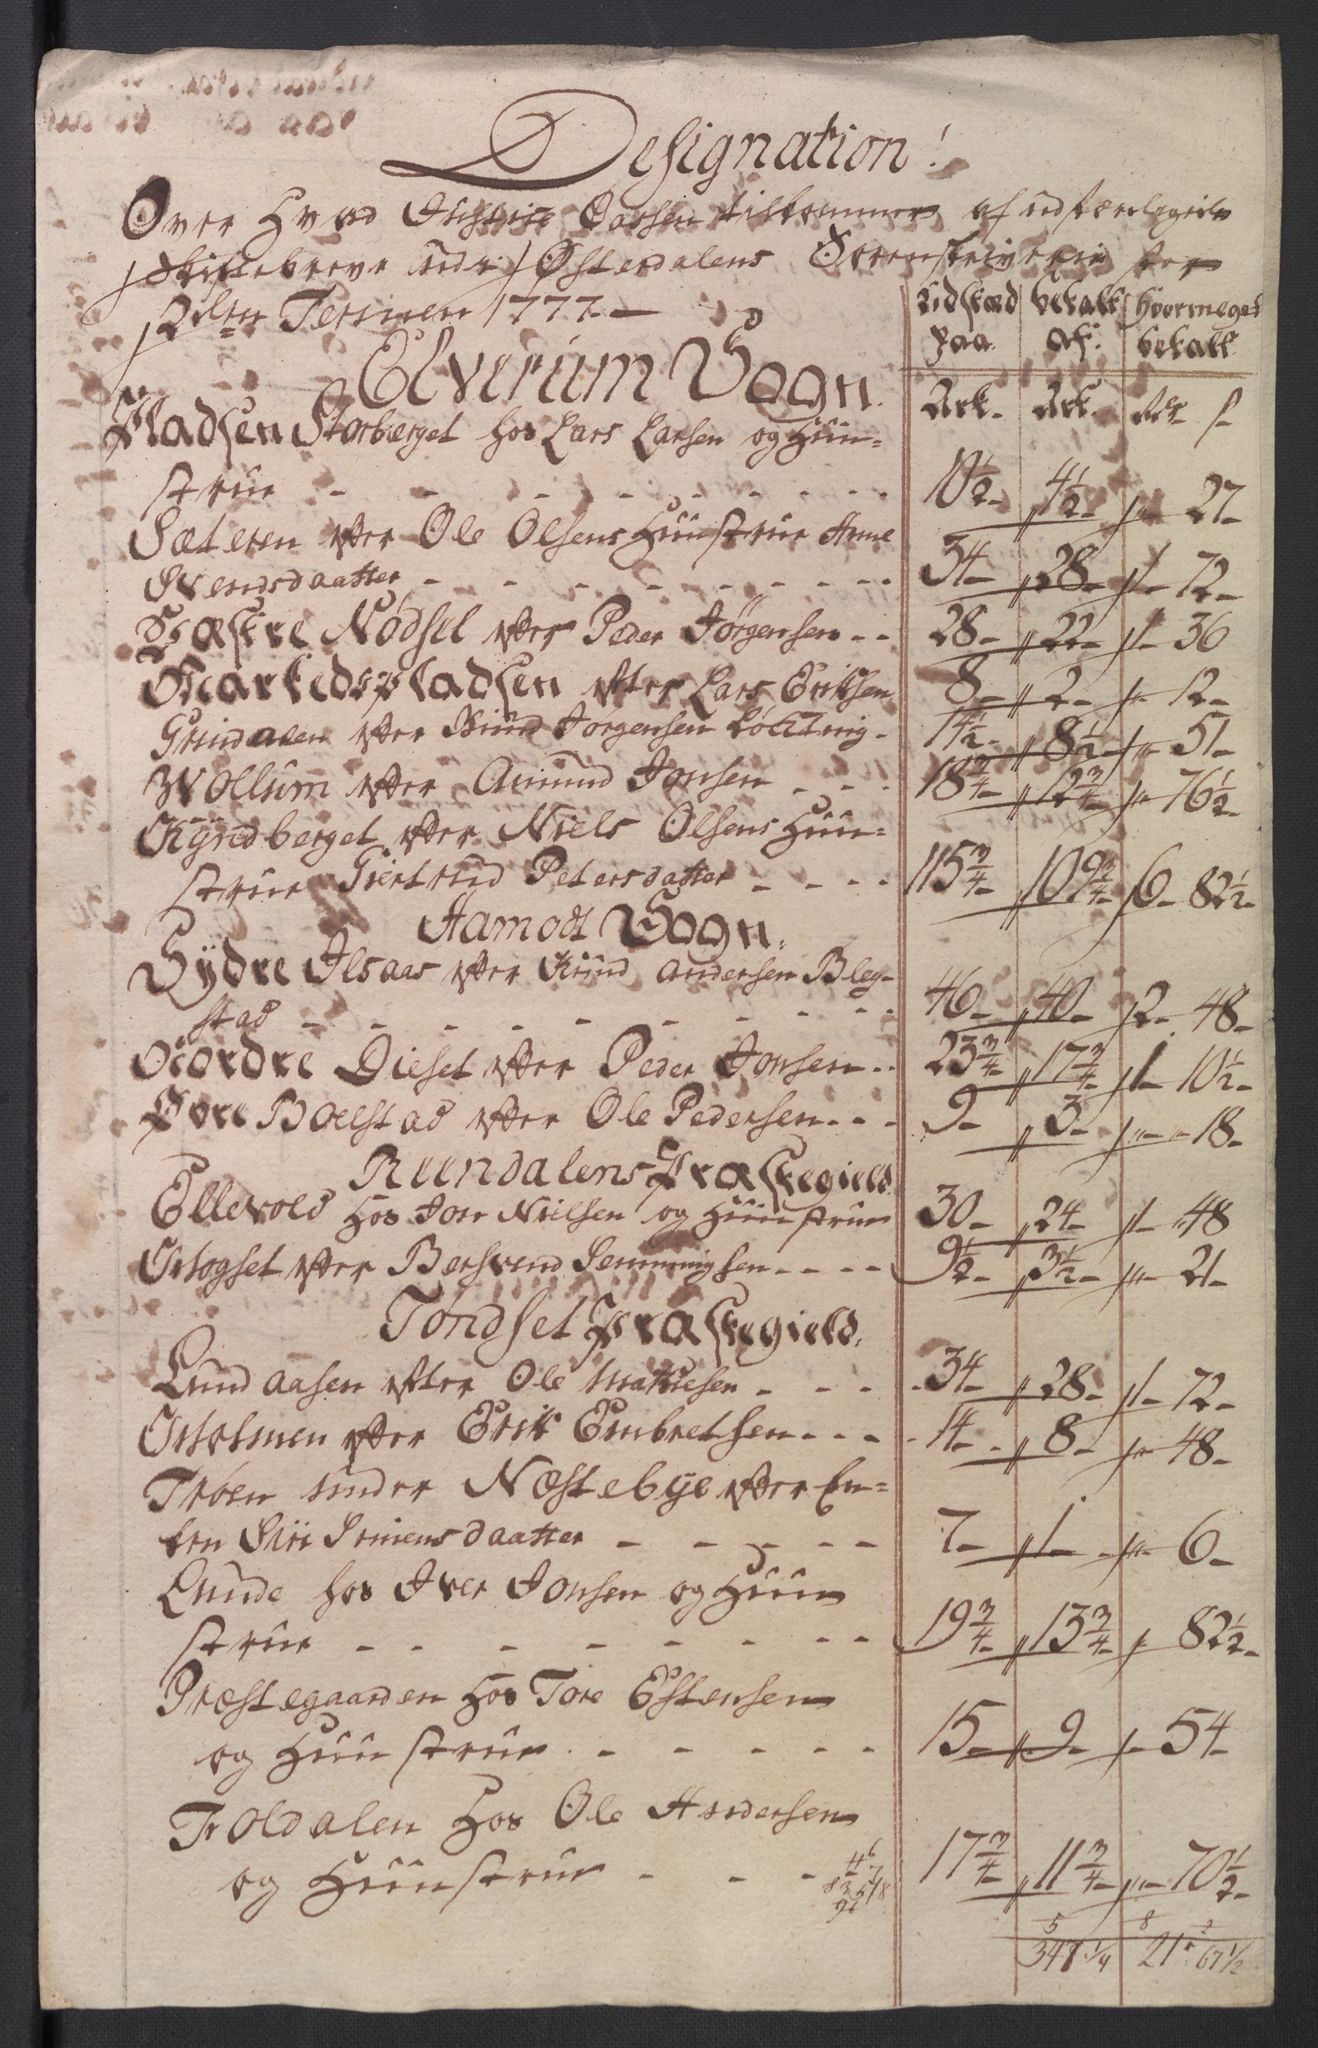 Designation!
Over Hvad Justitz Cassen tilkommer af udstædegede
Skiftebreve udi Østerdalens Sorenskriverie for
Terminen 1777 —
Udstæd paa | betalt af: | hvormeget betalt
Ark. | Ark. | Rdr s
Elverum Sogn.
Pladsen Storberget hos Lars Larsen og Huu-
strue - - - - - - - - 10½ - 4½ - „ - 27 -
Sæteren efter Ole Olsens Huustrue Anne
Svendsdaatter - - - - - - - - 34 - 28 - 1 - 72 -
Næstre Nødsel efter Peder Jørgensen - - 28 - 22 - 1 - 36
Markedspladsen efter Lars Eriksen 8 - 2 - „ - 12 -
Grindalen efter Knud Jørgensen Løkting - 14½ - 8½ - „ - 51 -
Wollum efter Amund Jonsen - - - 18¾ - 12¾ - „ - 76½ -
Kyndberget efter Niels Olsens Huu-
strue Giertrud Petersdatter - - - - 115¾ - 109¾ - 6 - 82½ -
Aamodt Sogn.
Sydre Ilsaas efter Knud Andersen Bleg-
stad - - - - - - - - - 46 - 40 - 2 - 48 -
Nordre Dieset efter Peder Jonsen - - 23¾ - 17¾ - 1 - 10½ -
Øvre Bolstad efter Ole Pedersen - - - 9 - 3 - „ - 18 -
Reendalens Præstegield
Ellevold hos Joen Nielsen og Huustrue 30 - 24 - 1 - 48
efter Bersvend Semmingsen - - - - 9½ - 3½ - „ - 21 -
Tøndset Præstegield.
Lund aasen efter Ole Mathiesen - - - - 34 - 28 - 1 - 72 -
efter Erik Embretsen - - - - 14 - 8 - „ - 48 -
Trøen under Næstebye efter En-
ken Siri Simensdaatter - - - - - 7 - 1 - „ - 6 -
Lunde hos Iver Jonsen og Huu
strue - - - - - - - - 19¾ - 13¾ - „ 82½ -
Præstegaarden hos Tore Estensen
og Huustrue - - - - - - 15 - 9 - „ - 54 -
Troldalen hos Ole Andersen
og Huustrue - - - 17¾ - 11¾ - „ - 70½ -
347 ¼ 21 67½